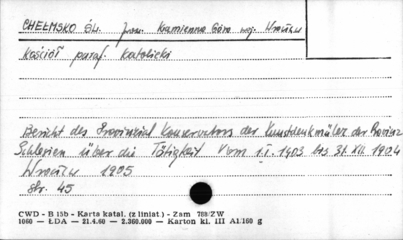 CHEŁMSKO ŚL. pow. Kamienna Góra woj. Wrocław
Kościół paraf. katolicki
Bericht des Provinzial Konservators der Kunstdenkmäler der Provinz
Schlesien über die Tätigkeit vom 1.I. 1903 bis 31. XII. 1904
Wrocław 1905
str. 45
CWD - B 15b - Karta katal. (z liniat.) - Zam 788/ZW
1060 — ŁDA — 21.4.60 — 2.360.000 — Karton kl. III A1/160 g